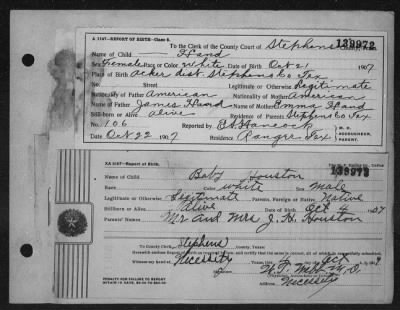 A 1147—REPORT OF BIRTH—Class 5.
To the Clerk of the County Court of Stephens 139972
Name of Child Hand
Sex Female Race or Color White Date of Birth Oct 21 1907
Place of Birth acker dist. Stephens Co Tex.
No. Street Legitimate or Otherwise Legitimate
Nationality of Father American Nationality of Mother American
Name of Father James Hand Name of Mother Emma Hand
Stillborn or Alive alive Residence of Parents Stephens Co Tex
No. 106 Reported by Hancock M. D.
Oct 22 1907 Residence Ranger Tex PARENT.
XA 1147—Report of Birth.
139973
Name of Child Baby Houston
Race Color white Sex Male
Legitimate or Otherwise Legitimate Parents, Foreign or Native Native
Stillborn or Alive Alive Date of Birth Oct 4 07
Parents' Names Mr and Mrs J. H. Houston
To County Clerk Stephens County, Texas:
Witness my hand at Necessity Oct
M. D.
Address Necessity
PENALTY FOR FAILURE TO REPORT